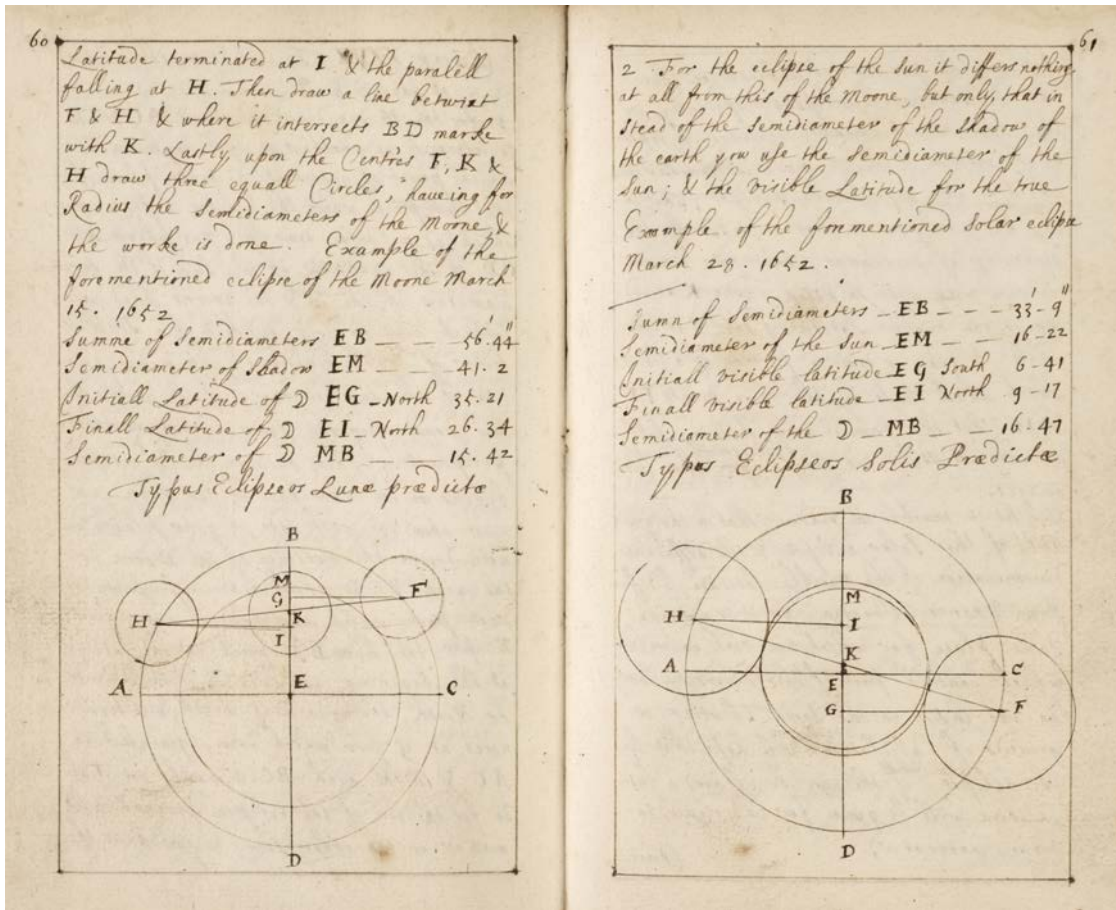 60
Latitude terminated at I & the paralell
falling at H. Then draw a line betwixt
F & H & where it intersects BD marke
with K. Lastly upon the Centres F, K &
H draw three equall Circles, haveing for
Radius the Semidiameters of the Moone, &
the worke is done. Example of the
forementioned eclipse of the Moone March
15. 1652
Summe of Semidiameters EB _ _ 56'. 44"
Semidiameter of Shadow EM _ _ 41. 2
Initiall Latitude of ☽ EG _ North 35. 21
Finall Latitude of ☽ EI _ North 26. 34
Semidiameter of ☽ MB _ _ 15. 42
Typus Eclipseos Lunæ prædictæ
B
M
G
F
K
H
I
A
E
C
D
61
2 For the eclipse of the Sun it differs nothing
at all from this of the Moone, but only, that in
stead of the Semidiameter of the Shadow of
the earth you use the Semidiameter of the
Sun; & the visible Latitude for the true
Example of the formentioned Solar eclipse
March 28. 1652.
Sumn of Semidiameters _ EB _ _ _ 33' - 9"
Semidiameter of the Sun _ EM _ _ 16 - 22
Initiall visible latitude _ EG South 6 - 41
Finall visible latitude _ EI North 9 - 17
Semidiameter of the ☽ _ MB _ _ 16 - 47
Typus Eclipseos Solis Prædictæ
B
M
H
I
K
A
C
E
G
F
D